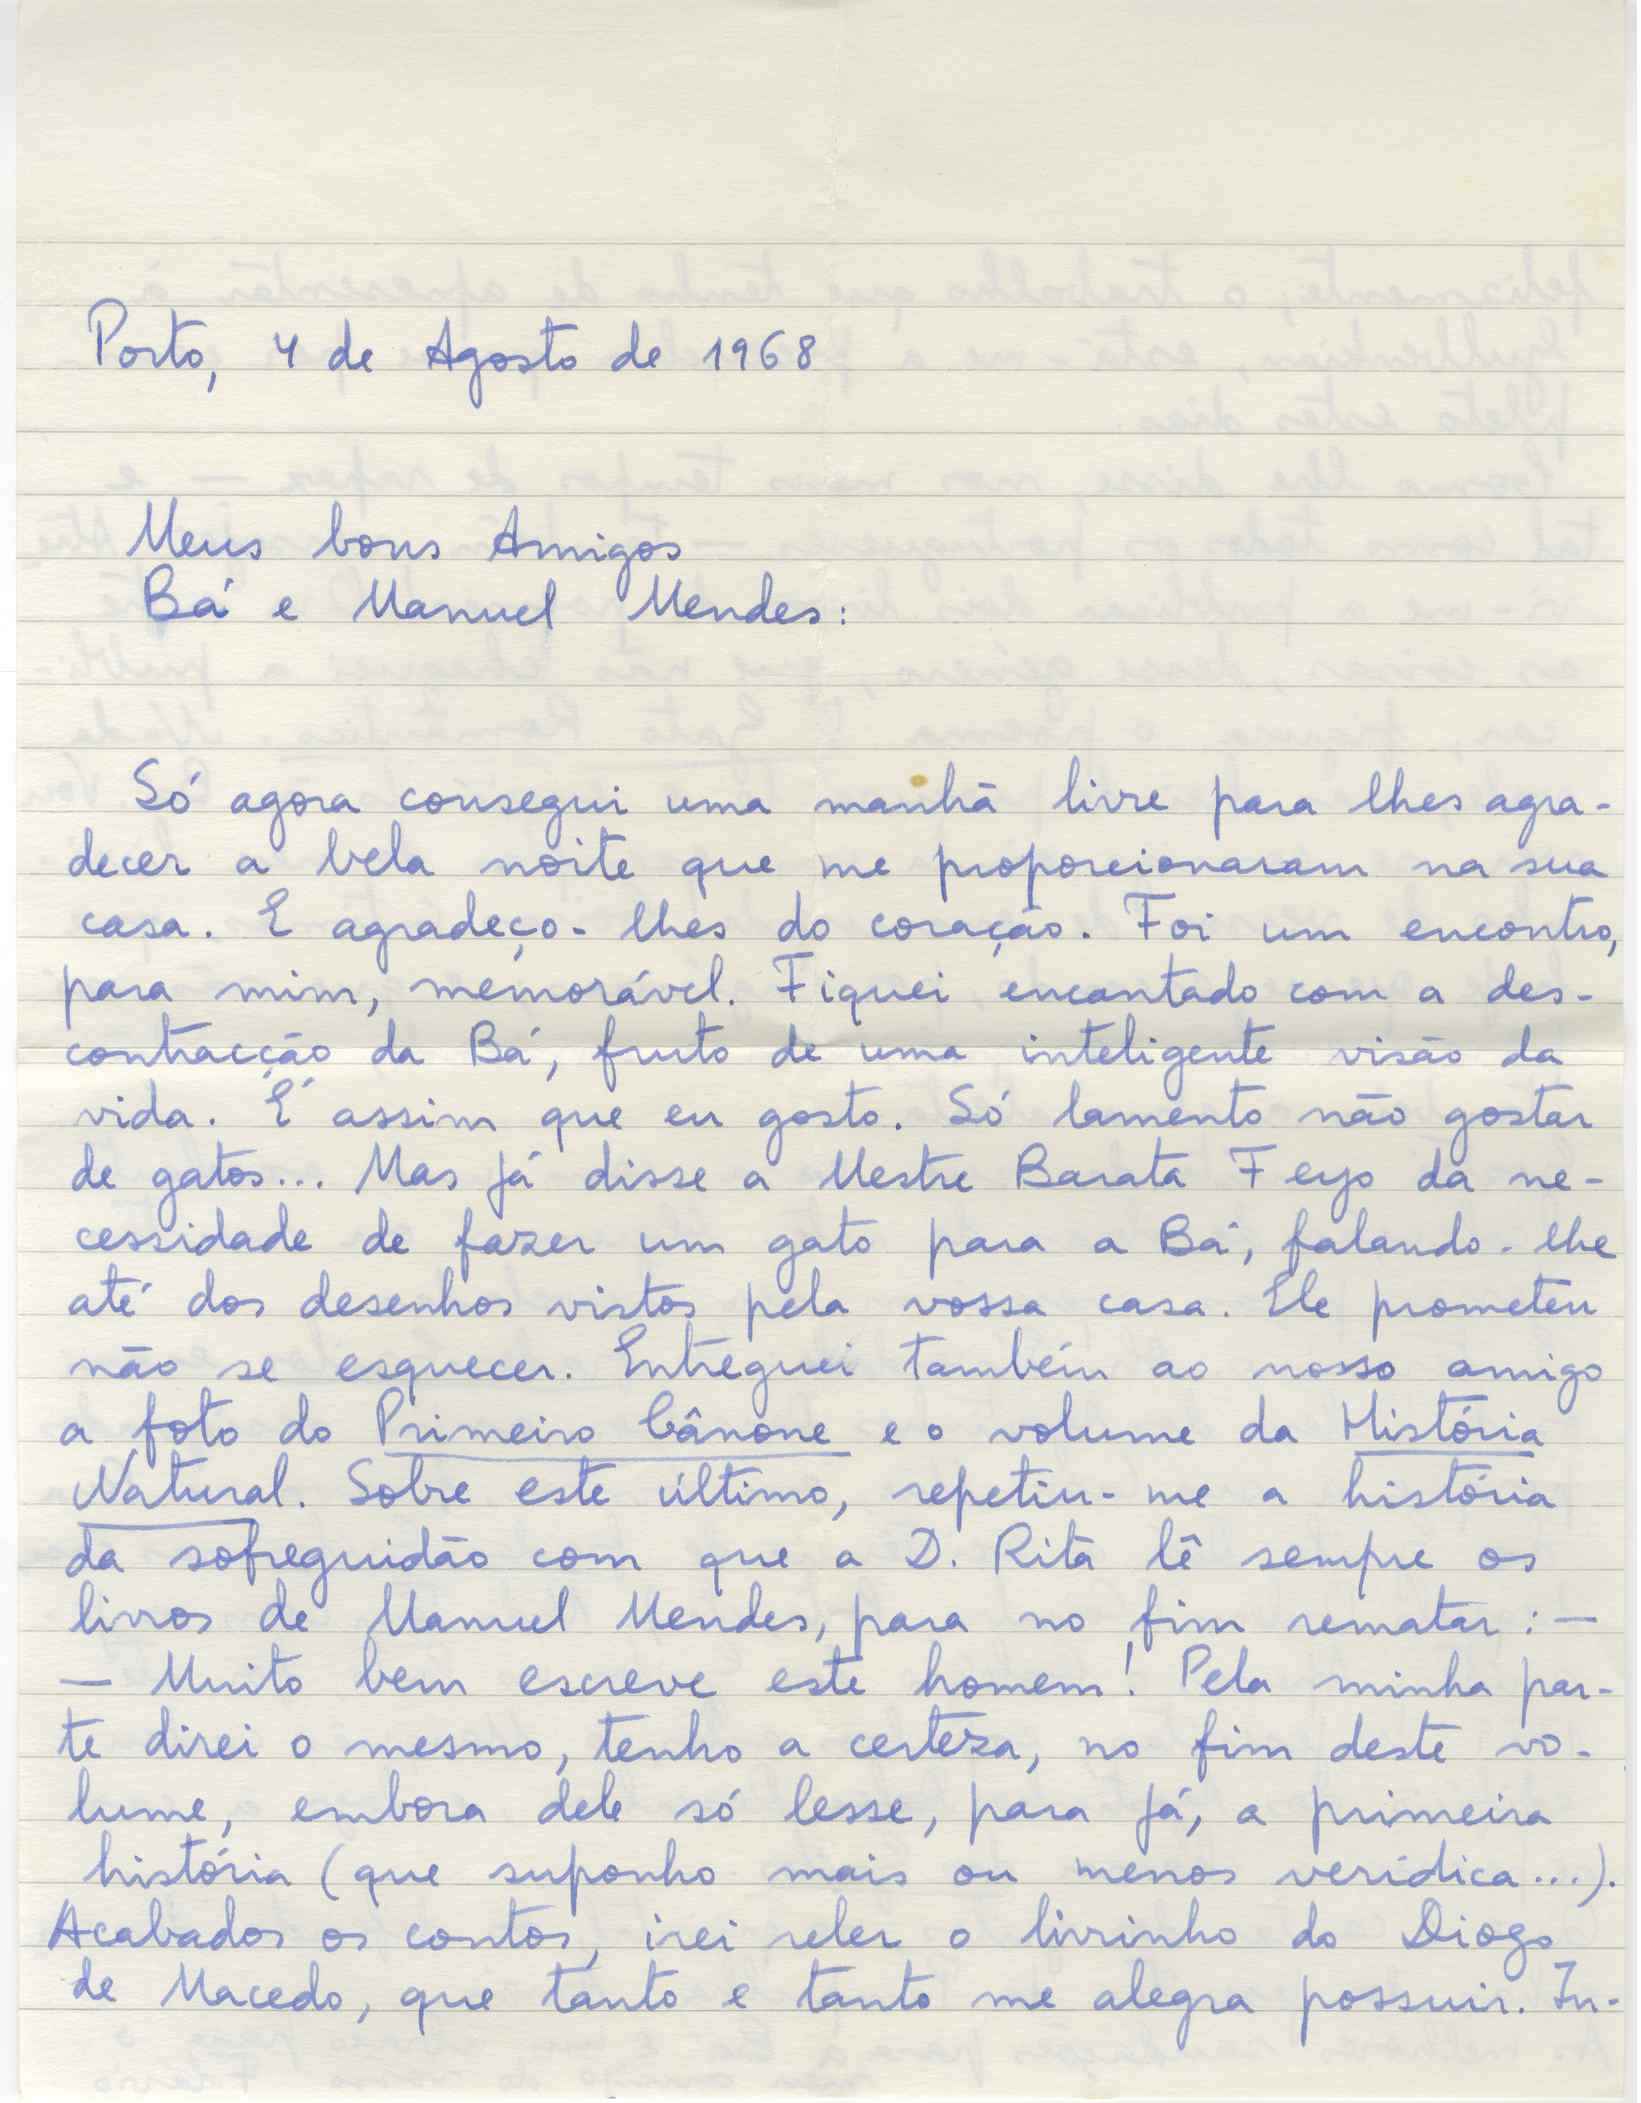 Porto, 4 de Agosto de 1968
Meus bons Amigos
Bá e Manuel Mendes:
Só agora consegui uma manhã livre para lhes agra-
decer a bela noite que me proporcionaram na sua
casa. E agradeço-lhes do coração. Foi um encontro,
para mim, memorável. Fiquei encantado com a des-
contracção da Bá, fruto de uma inteligente visão da
vida. É assim que eu gosto. Só lamento não gostar
de gatos... Mas já disse a Mestre Barata Feyo da ne-
cessidade de fazer um gato para a Bá, falando-lhe
até dos desenhos vistos pela vossa casa. Ele prometeu
não se esquecer. Entreguei também ao nosso amigo
a foto do Primeiro Cânone e o volume da História
Natural. Sobre este último, repetiu-me a história
da sofreguidão com que a D. Rita lê sempre os
livros de Manuel Mendes, para no fim rematar: —
— Muito bem escreve este homem! Pela minha par-
te direi o mesmo, tenho a certeza, no fim deste vo-
lume, embora dele só lesse, para já, a primeira
história (que suponho mais ou menos verídica...).
Acabados os contos, irei reler o livrinho do Diogo
de Macedo, que tanto e tanto me alegra possuir. In-